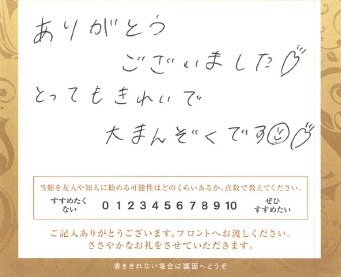 ありがとう
ございました
とってもきれいで
大まんぞくです
当館を友人や知人に勧める可能性はどのくらいあるか、点数で教えてください。
すすめたく
ない
0 1 2 3 4 5 6 7 8 9 10
ぜひ
すすめたい
ご記入ありがとうございます。フロントへお渡しください。
ささやかなお礼をさせていただきます。
書ききれない場合は裏面へどうぞ